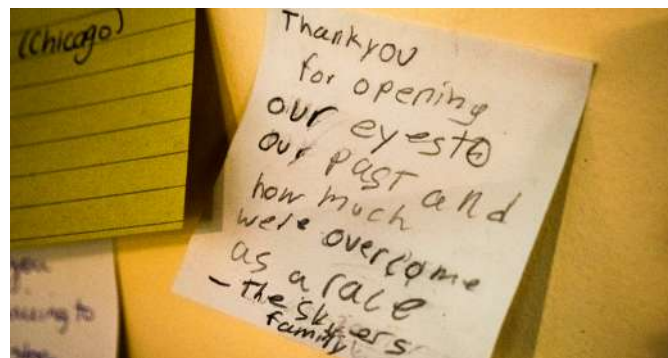 (Chicago)
Thankyou
for opening
our eyes to
our past and
how much
we've overcome
as a race
- The Skyers
family
you
to